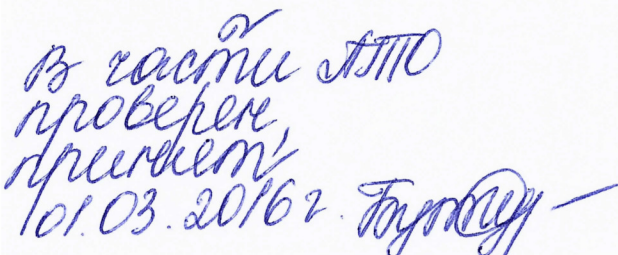 В части АТО
проверен,
принят
01.03.2016 г.